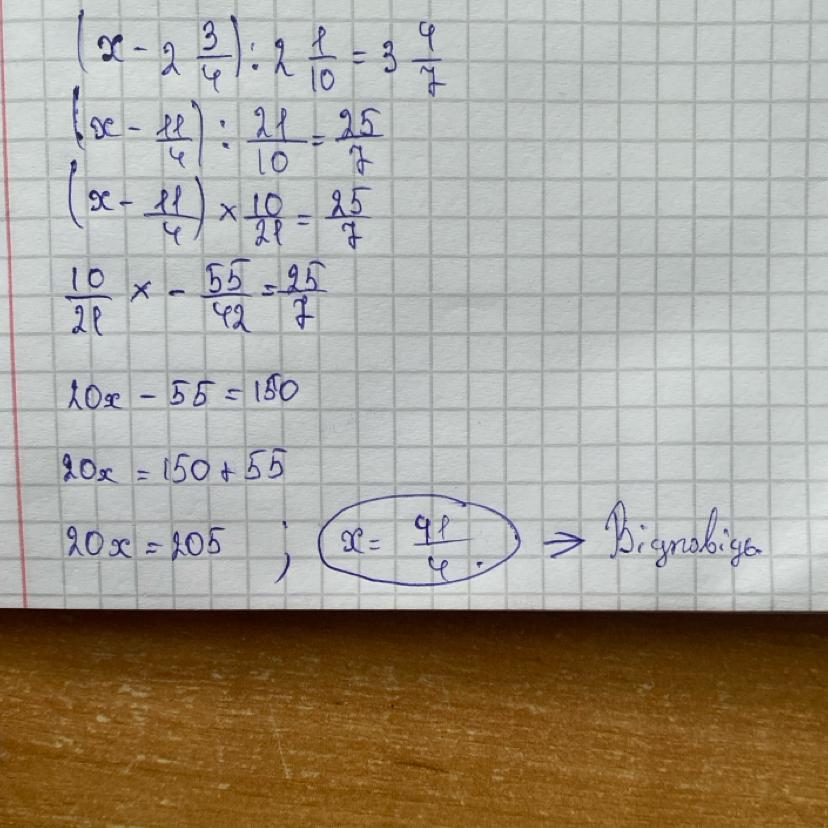 (x - 2 3/4) : 2 1/10 = 3 4/7
(x - 11/4) : 21/10 = 25/7
(x - 11/4) × 10/21 = 25/7
10/21 x - 55/42 = 25/7
20x - 55 = 150
20x = 150 + 55
20x = 205 ; x = 41/4 . ⇒ Відповідь